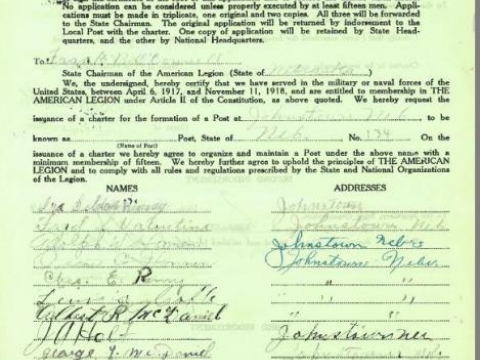 No application can be considered unless properly executed by at least fifteen men. Appli-
cations must be made in triplicate, one original and two copies. All three will be forwarded
to the State Chairman. The original application will be returned by indorsement to the
Local Post with the charter. One copy of application will be retained by State Head-
quarters, and the other by National Headquarters.
To
State Chairman of the American Legion (State of
We, the undersigned, hereby certify that we have served in the military or naval forces of the
United States, between April 6, 1917, and November 11, 1918, and are entitled to membership in THE
AMERICAN LEGION under Article II of the Constitution, as above quoted. We hereby request the
issuance of a charter for the formation of a Post at Johnstown Neb
to be
known as Post, State of Neb. No. 134 On the
(Name of Post)
issuance of a charter we hereby agree to organize and maintain a Post under the above name with a
minimum membership of fifteen. We hereby further agree to uphold the principles of THE AMERICAN
LEGION and to comply with all rules and regulations prescribed by the State and National Organizations
of the Legion.
NAMES ADDRESSES
Johnstown
Valentine Johnstown Neb
Ralph Johnstown Nebr
Johnstown Nebr
Chas. E. " "
" "
Albert R McDaniel " "
J A Holt Johnstown Neb
George J. McDaniel